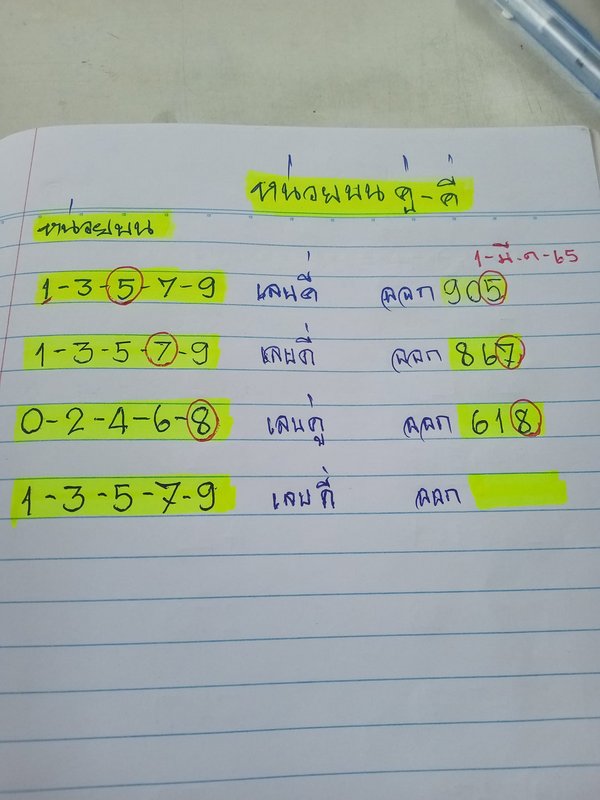 หน่วยบน คู่-คี่
หน่วยบน
1-มี.ค-65
1-3-5-7-9 เลขคี่ ออก 905
1-3-5-7-9 เลขคี่ ออก 867
0-2-4-6-8 เลขคู่ ออก 618
1-3-5-7-9 เลขคี่ ออก